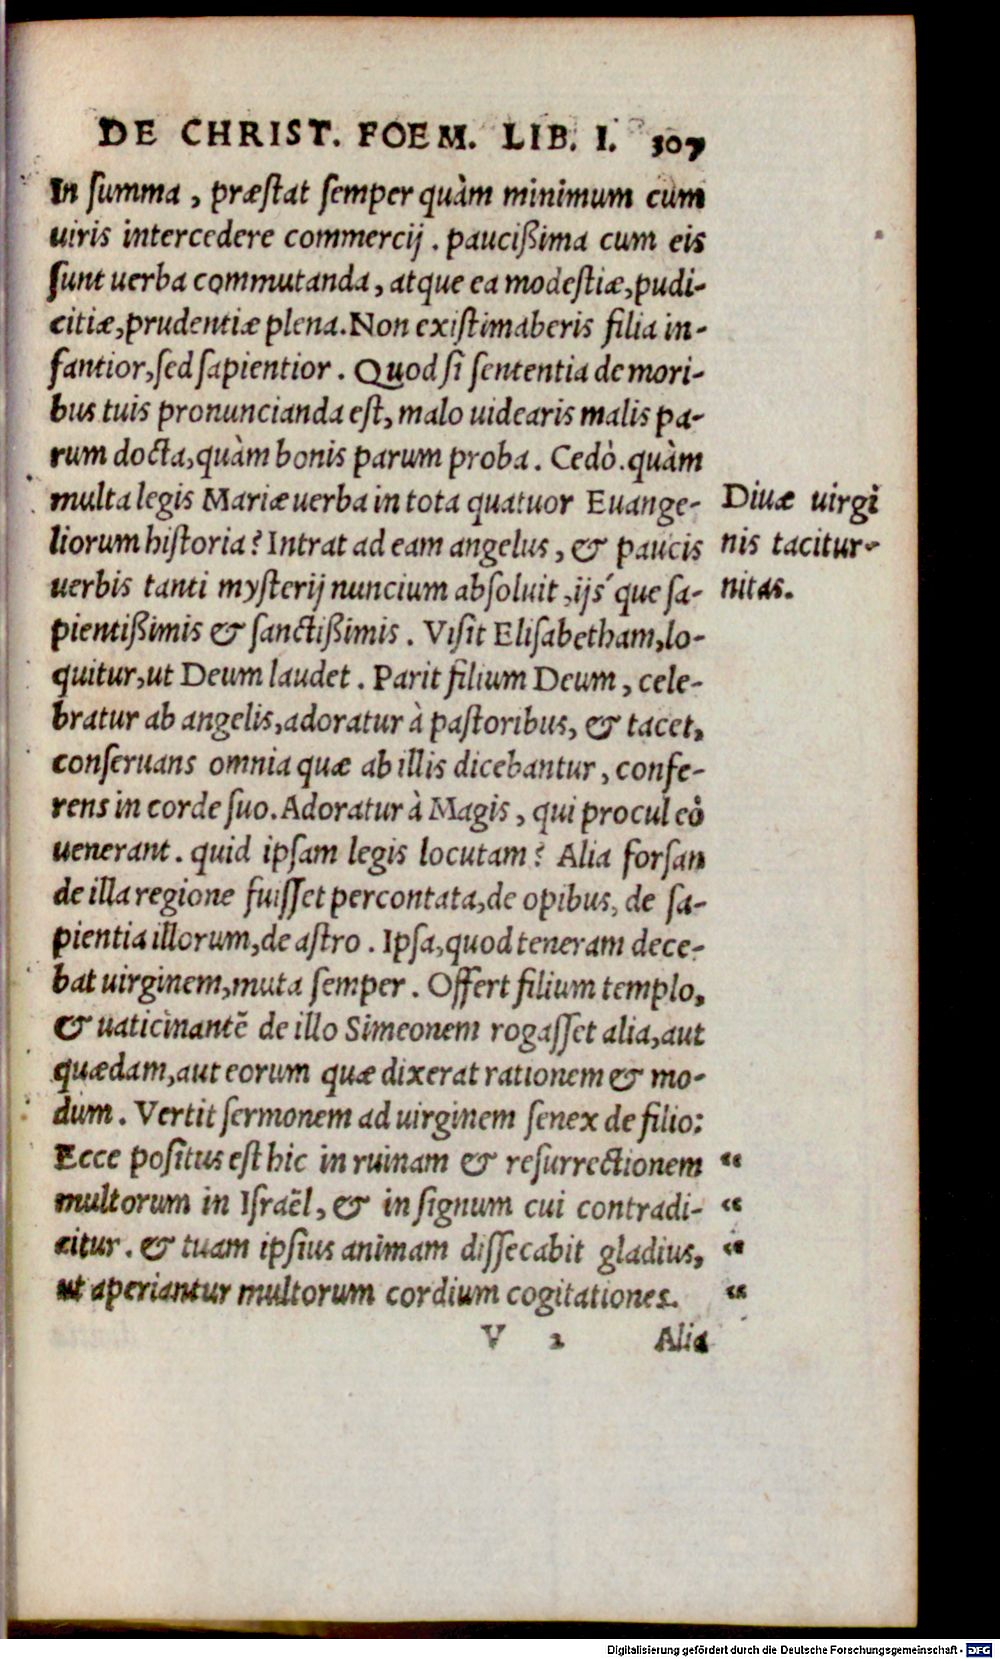 DE CHRIST. FOEM. LIB. I. 307
In summa, præstat semper quàm minimum cum
uiris intercedere commercij. paucißima cum eis
sunt uerba commutanda, atque ea modestiæ, pudi-
citiæ, prudentiæ plena. Non existimaberis filia in-
fantior, sed sapientior. Quod si sententia de mori-
bus tuis pronuncianda est, malo uidearis malis pa-
rum docta, quàm bonis parum proba. Cedò. quàm
multa legis Mariæ uerba in tota quatuor Euange-
liorum historia? Intrat ad eam angelus, & paucis
uerbis tanti mysterij nuncium absoluit, ijs´que sa-
pientißimis & sanctißimis. Visit Elisabetham, lo-
quitur, ut Deum laudet. Parit filium Deum, cele-
bratur ab angelis, adoratur à pastoribus, & tacet,
conseruans omnia quæ ab illis dicebantur, confe-
rens in corde suo. Adoratur à Magis, qui procul eò
uenerant. quid ipsam legis locutam? Alia forsan
de illa regione fuisset percontata, de opibus, de sa-
pientia illorum, de astro. Ipsa, quod teneram dece-
bat uirginem, muta semper. Offert filium templo,
& uaticinantē de illo Simeonem rogasset alia, aut
quædam, aut eorum quæ dixerat rationem & mo-
dum. Vertit sermonem ad uirginem senex de filio:
Ecce positus est hic in ruinam & resurrectionem “
multorum in Israël, & in signum cui contradi- “
citur. & tuam ipsius animam dissecabit gladius, “
ut aperiantur multorum cordium cogitationes. “
V 2 Alia
Diuæ uirgi
nis tacitur-
nitas.
Digitalisierung gefördert durch die Deutsche Forschungsgemeinschaft - DFG